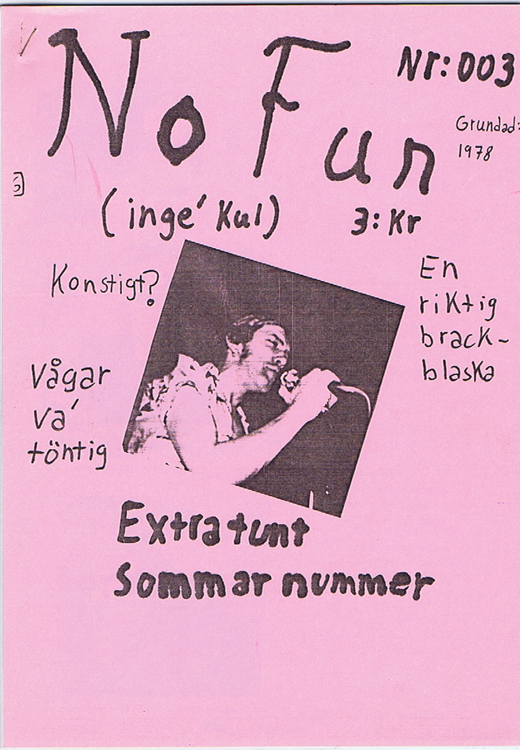 No Fun
Nr: 003
Grundad:
1978
(inge' Kul)
3: Kr
Konstigt?
En
riktig
brack-
blaska
Vågar
va'
töntig
Extra tunt
Sommar nummer